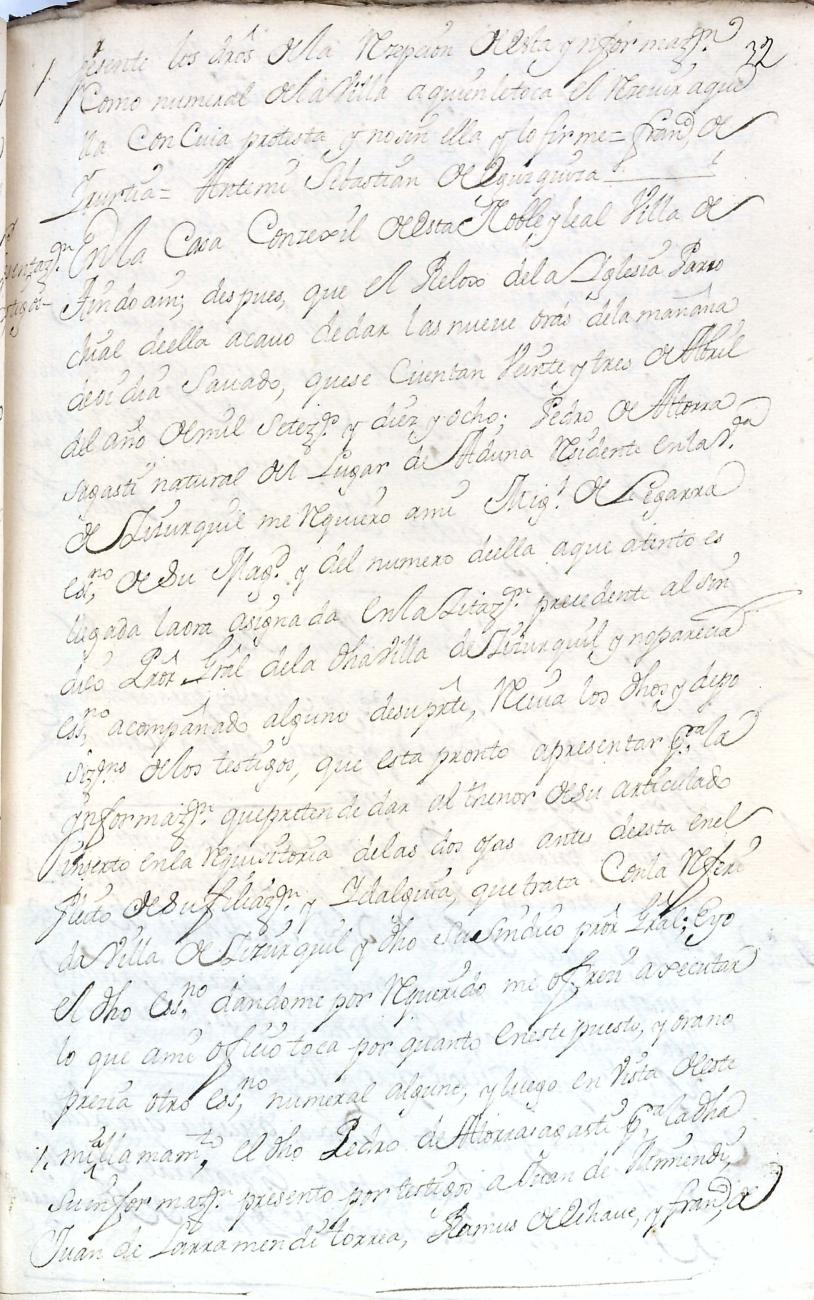 32
1. presente los dros de la Rezepcion de esta ynformazn.
Como numeral de la Villa a quien le toca el Rezevir aque
lla Con Cuia protesta y no sin ella y lo firme = Frando de
Yrurtia = Antemi Sebastian de Eguzquiza
En la Casa Conzexil de esta Noble y leal Villa de
Aindoain; despues, que el Relox de la Yglesia Parro
chial de ella acavo de dar las nueve oras de la mañana
de oi dia Savado, que se Cuentan Veinte y tres de Abril
del año de mil Setezs. y diez y ocho; Pedro de Atorra
sagasti natural del Lugar de Aduna Residente en la Va.
de Lizurquil me Requirio a mi Migl. de Legarra
essno. de Su Magd. y del numero de ella a que atento es
llegada la ora asignada en la Zitazn. precedente al Sin
dico Pror Gral de la dha Villa de Lizurquil y no parecia
essno. acompañado alguno de su prte, Reciva los dhos y depo
sizns. de los testigos, que esta pronto a presentar pa. la
ynformazn. que pretende dar al thenor de su articulado
inserto en la Requisitoria de las dos ojas antes de esta en el
pleito de su filiazn. y Ydalguia, que trata Con la Refferi
da Villa de Lizurquil y dho su Sindico pror Gral; E yo
el dho Essno. dandome por Requerido me ofreci a executar
lo que a mi officio toca por quanto en este puesto, y ora no
precia otro essno. numeral alguno, y luego en Vista de este
1. mi llamamto. el dho Pedro de Atorrasagasti pa. la dha
su informazn. presento por testigos a Juan de Yrimendi,
Juan de Larramendi torrea, Ramus de Echave, y Frando de